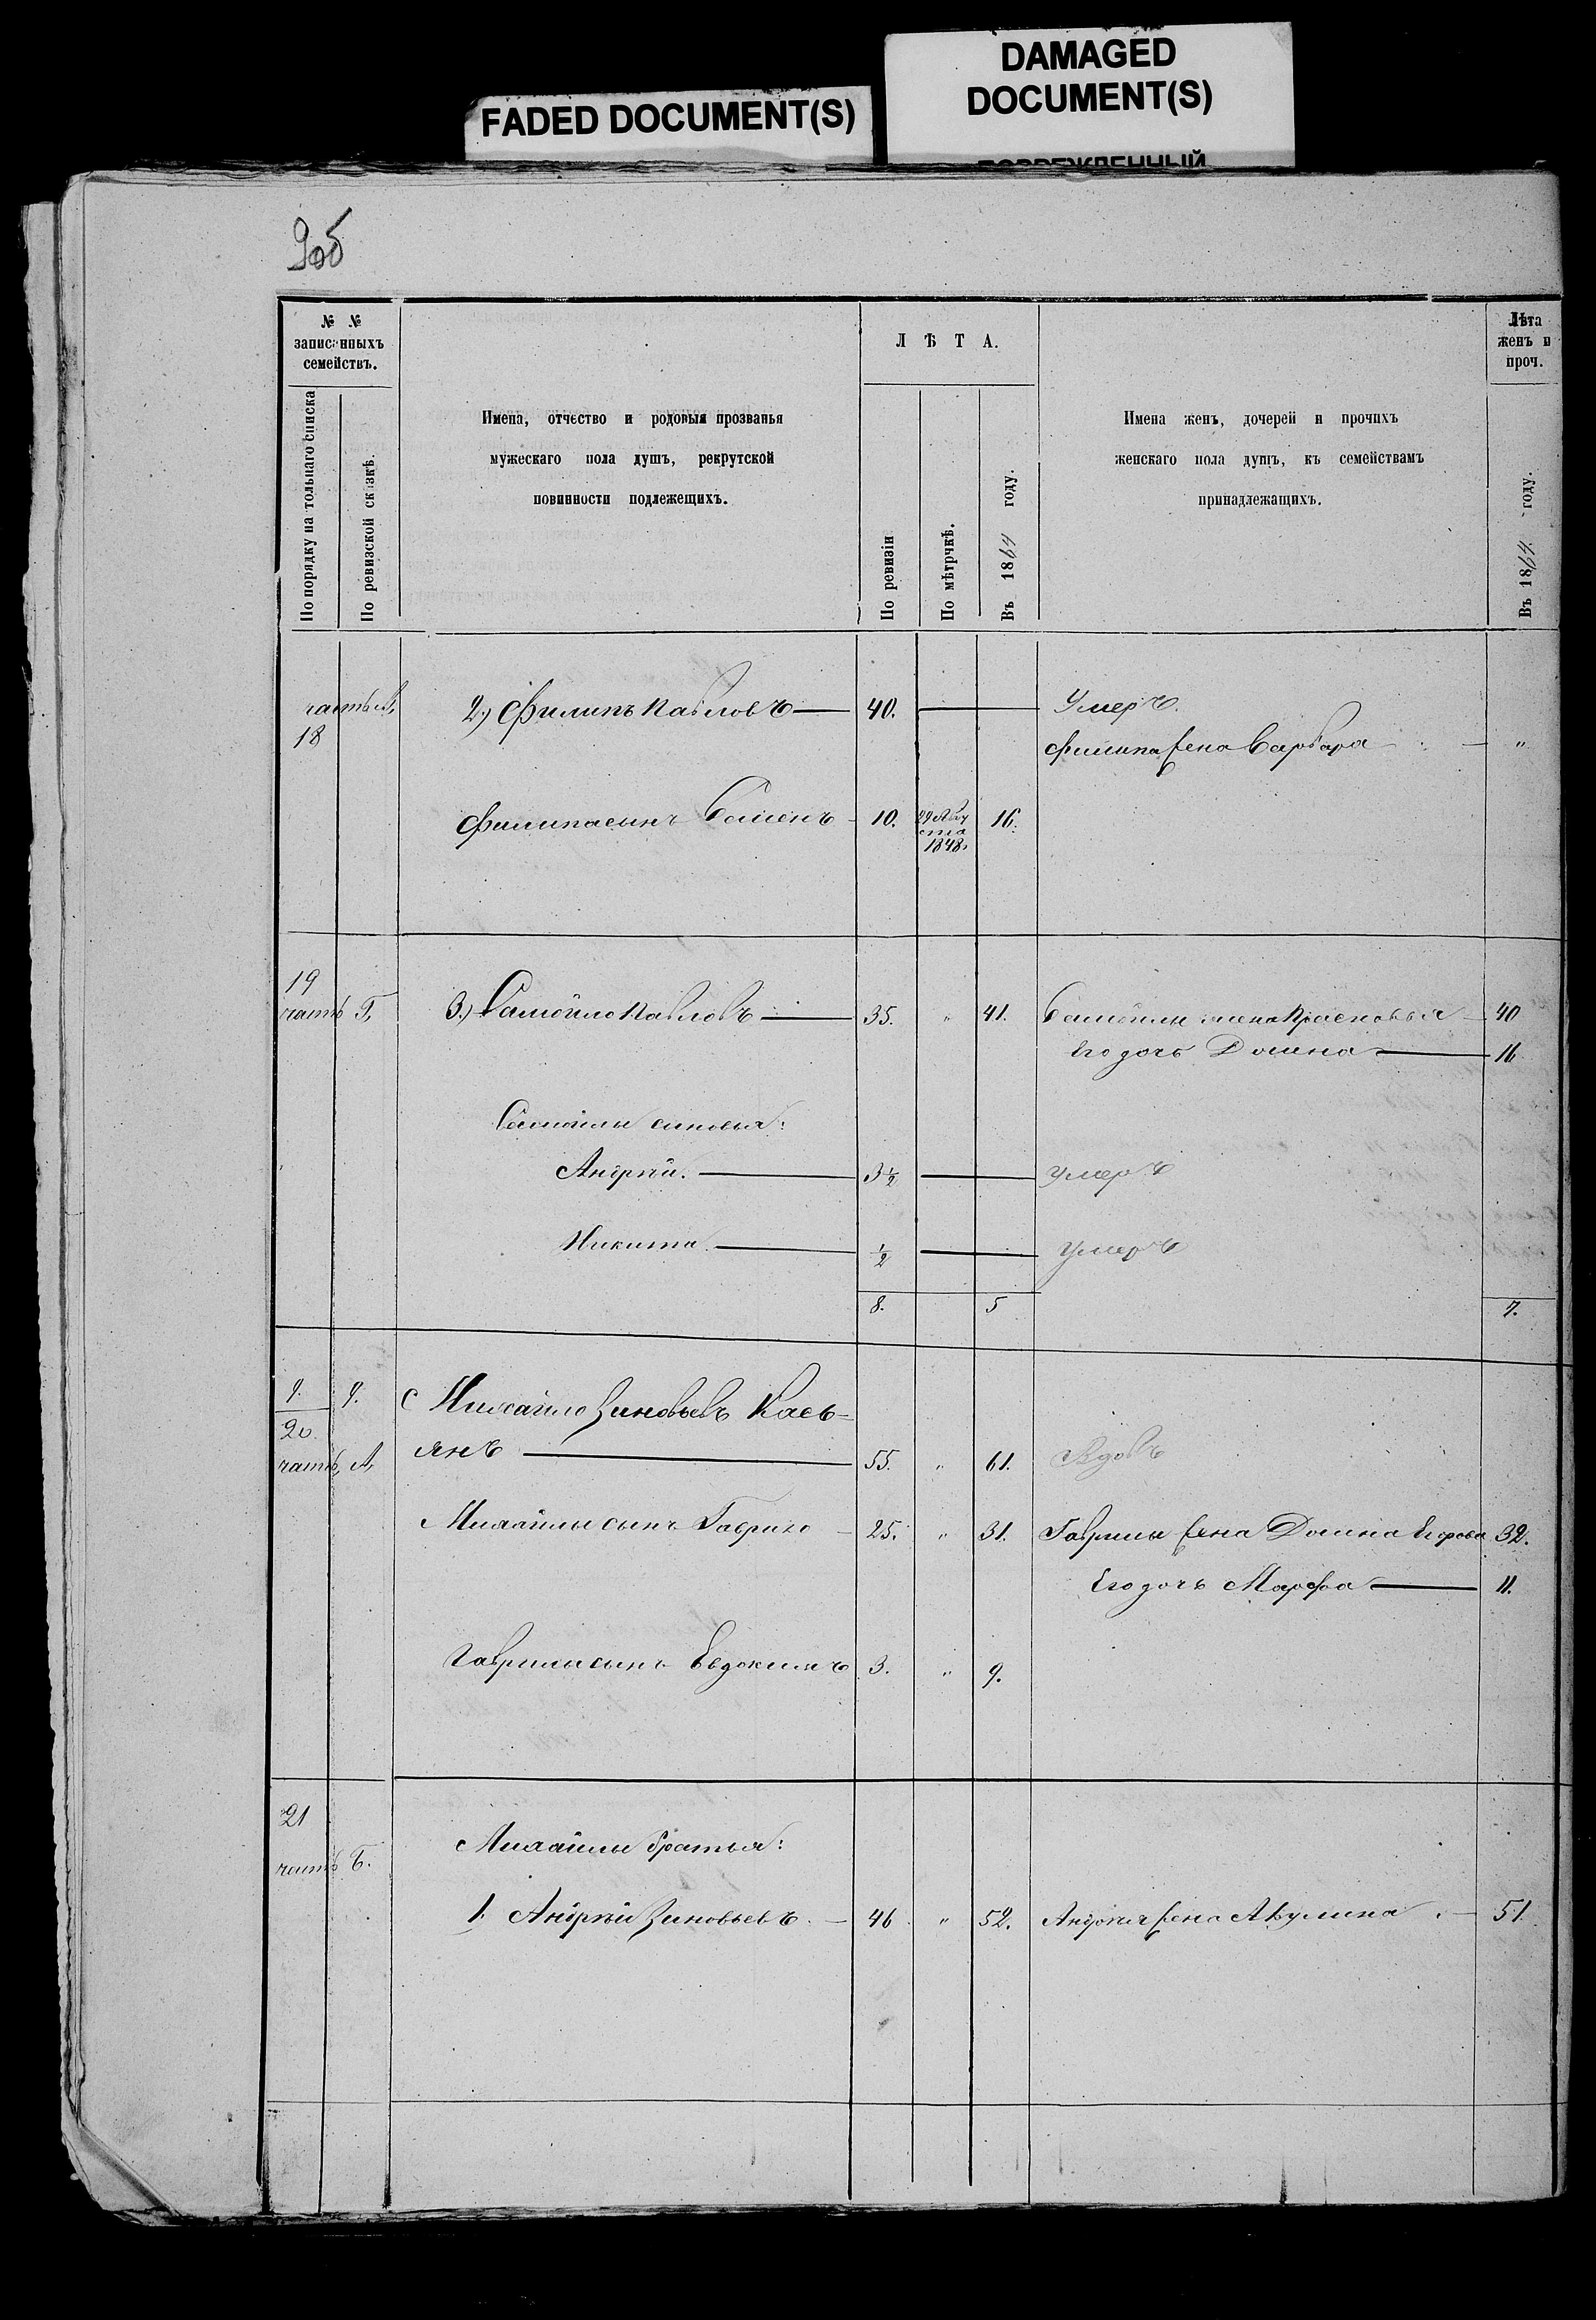 FADED DOCUMENT(S)
DAMAGED
DOCUMENT(S)
№ №
записанныхъ
семействъ.
По порядку на тольнаго списка
По ревизской сказкѣ.
Имена, отчество и родовыя прозванья
мужескаго пола душъ, рекрутской
повинности подлежещихъ.
Л Ѣ Т А.
По ревизіи
По мѣтрчкѣ.
Въ 1864 году.
Имена женъ, дочерей и прочихъ
женскаго пола душъ, къ семействамъ
принадлежащихъ.
Лѣта
женъ и
проч.
Въ 1864 году.
часть
18
2.) Филипъ Павловъ — 40. — Умеръ.
Филипа жена Варвара — "
Филипа сынъ Семенъ 10. 29 Авгу
ста
1848. 16.
19
часть Г, 3.) Самойло Павловъ — 35. " 41. Самойлы жена 40
Его дочь Домна — 16
Самойлы сыновья:
Андрей. — 3½ — умеръ
Никита. — ½ — умеръ
8. 5 7.
9. 9. Михайло Зиновьевъ Кась-
20
часть А, янъ — 55. " 61. Вдовъ
Михайлы сынъ Гаврило 25. " 31. Гаврилы жена Домна 32.
Его дочь Марфа — 11.
Гаврилы сынъ Евдокимъ 3. " 9.
21
часть Б. Михайлы братья:
1. Андрей Зиновьевъ. — 46 " 52. Андрея жена Акулина. — 51.